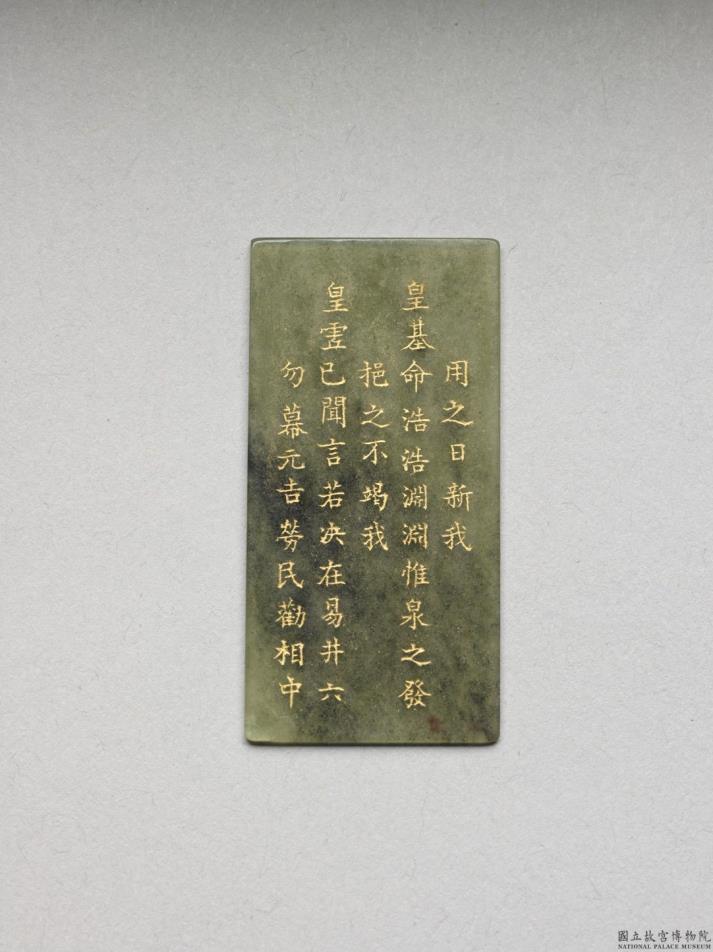 用之日新我
皇基命浩浩淵淵惟泉之發
挹之不竭我
皇霊已聞言若决在易井六
勿幕元吉勞民勸相中
國立故宮博物院
NATIONAL PALACE MUSEUM